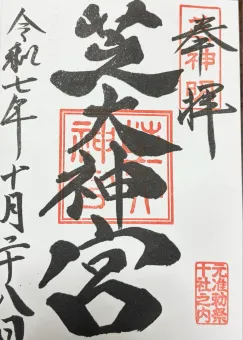 奉拝
芝大神宮
令和七年十月二十八日
元准勅祭
十社之内